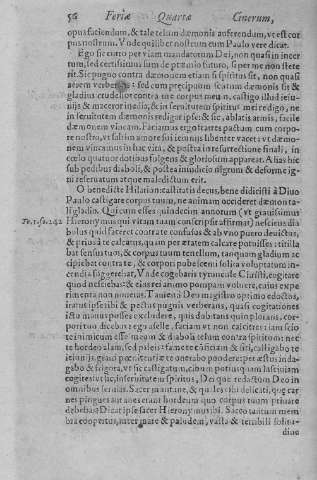 56 Feriæ Quartæ Cinerum,
opus faciendum, & tale telum dæmonis auferendum, vt est cor
pus nostrum. Vnde quilibet nostrum cum Paulo vere dicat.
Ego sic curro per viam mandatorum Dei, non quasi in incer
tum, sed certissimus sum de præmio futuro, si per me non stete
rit. Sic pugno contra dæmonem etiam si spiritus sit, non quasi
aerem verberans: sed cum precipuum scutum dæmonis sit &
gladius crudelior contra me corpus meum, castigo illud ieiu-
nijs & macero inedio, & in seruitutem spiritus mei redigo, ne
in seruitutem dæmonis redigar ipse: & sic, ablatis armis, facile
dæmonem vincam. Faciamus ergo fratres pactum cum corpo
re nostro, vt saltim amore sui ieiunijs libenter vacet: vt dæmo
nem vincamus in hac vita, & postea in resurrectione finali, in
cœlo quatuor dotibus fulgens & gloriosum appareat. Alias hic
sub pedibus diaboli, & postea in iudicio nigrum & deforme ig-
ni reseruatum atque maledictum erit.
O benedicte Hilarion: castitatis decus, bene didicisti à Diuo
Paulo castigare corpus tuum, ne animam occideret dæmon ta-
li gladio. Qui cum esses quindecim annorum (vt grauissimus
Hieronymus qui vitam tuam conscripsit affirmat) nescires dia
bolus quid faceret contrate confusus & ab vno puero deuictus,
& prius à te calcatus, quam per ætatem calcare potuisses: titilla
bat sensus tuos, & corpus tuum tenellum, tanquam gladium ac
cipiebat contra te, & corpori pubescenti solita voluptatum in-
cendia suggerebat. Vnde cogebaris tyruncule Christi, cogitare
quod nesciebas: & eius rei animo pompam voluere, cuius expe
rimenta non noueras. Tamen à Deo magistro optimo edoctus,
iratus ipse tibi & pectus pugnis verberans, quasi cogitationes
ictu manus posses excludere, quis dubitat quin plorans, cor-
pori tuo dicebas: ego aselle, faciam vt non calcitres: iam scio
te inimicum esse meum & diaboli telum contra spiritum: nec
te hordeo alam, sed paleis: fame te conficiam & siti, castigabo te
ieiunijs, graui pœnitentiæ te onerabo pondere: per æstus inda-
gabo & frigora, vt sic castigatum, cibum potius quam lasciuiam
cogites: vt sic, in seruitutem spiritus, Dei que redactum Deo in
omnibus seruias. Sacre punitane, & que les tibi delicati, quę car
nes pinguet aut anes erant hordeum quo corpus tuum priuare
debebas? Dicat ipse sacer Hieronymus ibi. Sacco tantum mem
bra coopertus, inter mare & paludem, vasta & terribili solitu-
dine